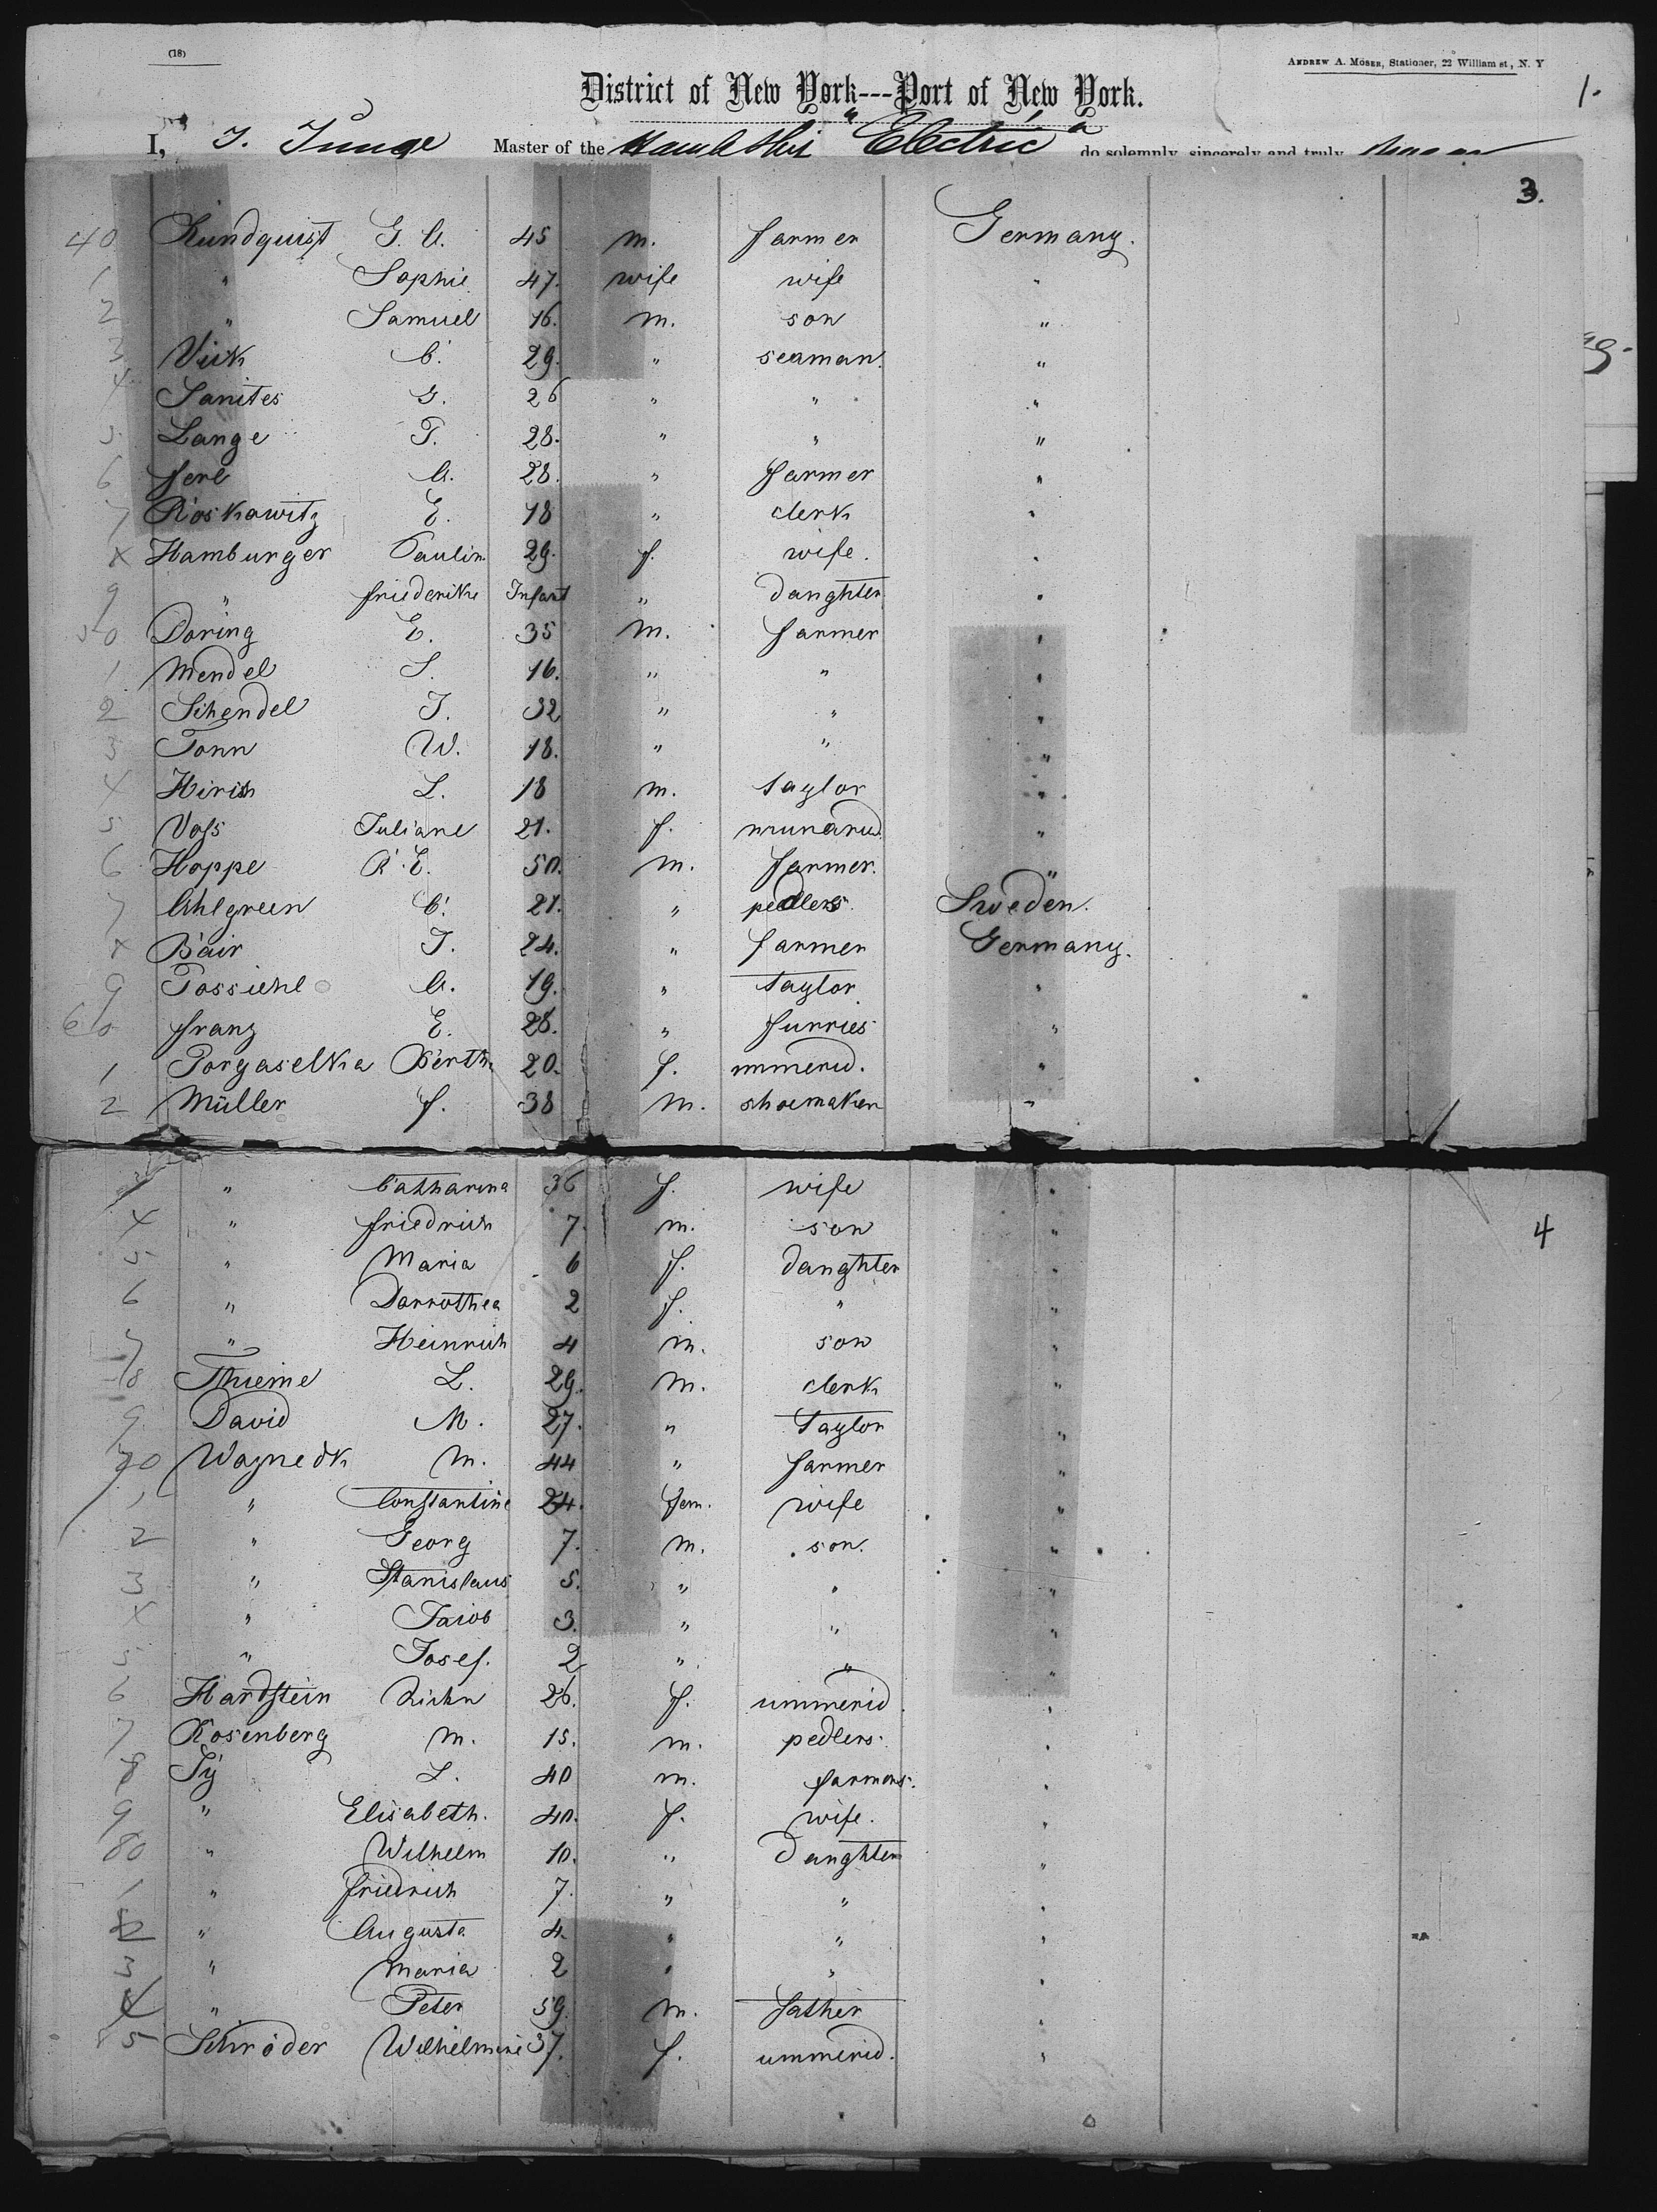 (18)
ANDREW A. MÖSER, Stationer, 22 William st, N. Y
1.
District of New York---Port of New York.
I, J. Junge Master of the Hamb Ship "Electric" do solemnly, sincerely and truly
3.
40 Rundquist G. A. 45 m. farmer Germany.
1 " Sophie 47. wife wife "
2 " Samuel 16. m. son "
3 Vick C. 29. " seaman. "
4 Sanites G. 26 " " "
5 Lange T. 28. " " "
6 ferl A. 28. " farmer "
7 Roskowitz E. 18 " clerk "
8 Hamburger Paulin 29. f. wife. "
9 " friederike Infant " daughter "
50 Doring E. 35 m. farmer "
1 Mendel S. 16. " " "
2 Schendel J. 32 " " "
3 Tonn W. 18. " " "
4 Hirsch L. 18 m. taylor "
5 Voss Juliane 21. f. "
6 Hoppe R. E. 50. m. farmer. "
7 Ahlgreen C. 21. " pedlers. Sweden.
8 Bair J. 24. " farmer Germany.
9 Possiehl A. 19. " taylor "
60 franz E. 28. " furries "
1 Porgaselka Berth. 20. f. ummerid. "
2 Müller f. 38 m. shoemaker "
4
" Catharina 36 f. wife "
4 " friedrich 7. m. son "
5 " Maria 6 f. daughter "
6 " Dorrothea 2 f. " "
7 " Heinrich 4 m. son "
8 Thieme L. 29. m. clerk "
9 David M. 27. " Taylor "
70 Wagnedk M. 44 " farmer "
1 " Constantine 24. fem. wife "
2 " Georg 7. m. son. "
3 " Stanislaus 5. " " "
4 " Jacob 3. " " "
5 " Josef. 2 " " "
6 Hardstein 26. f. ummerid. "
7 Rosenberg M. 15. m. pedlers. "
8 Ty L. 40 m. farmers. "
9 " Elisabeth. 40. f. wife. "
80 " Wilhelm 10. " daughter "
1 " friedrich 7. " " "
2 " Augusta 4. " " "
3 " Maria 2 " " "
4 " Peter 59. m. father "
85 Schröder Wilhelmine 37. f. ummerid. "